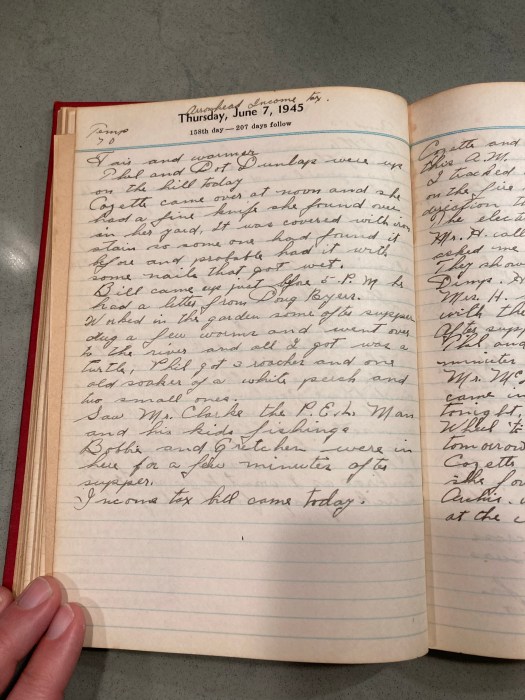 Arrowhead Income tax.
Thursday, June 7, 1945
158th day — 207 days follow
Temp
70
Fair and warmer
Phil and Dot Dunlap were up
on the hill today
Cozette came over at noon and she
had a fine knife she found over
in her yard, It was covered with iron
stain so some one had found it
before and probable had it with
some nails that got wet.
Bill came up just before 5 - P.M. he
had a letter from Doug Byers.
Worked in the garden some after supper
dug a few worms and went over
to the river and all I got was a
turtle, Phil got 3 roaches and one
old soaker of a white perch and
two small ones.
Saw Mr. Clarke the P.E.L. Man
and his kids fishing
Bobbie and Gretchen were in
here for a few minutes after
supper.
Income tax bill came today.
Cozette and
this A.M.
I tracked
on the five
direction t
The elect
Mr. H. call
asked me
They show
Dimps.
Mrs. H.
with the
After supp
Phil and
minutes
Mr. Mc
came in
tonight,
Wheel
tomorrow
Cozette
she fou
Archie.
at the c